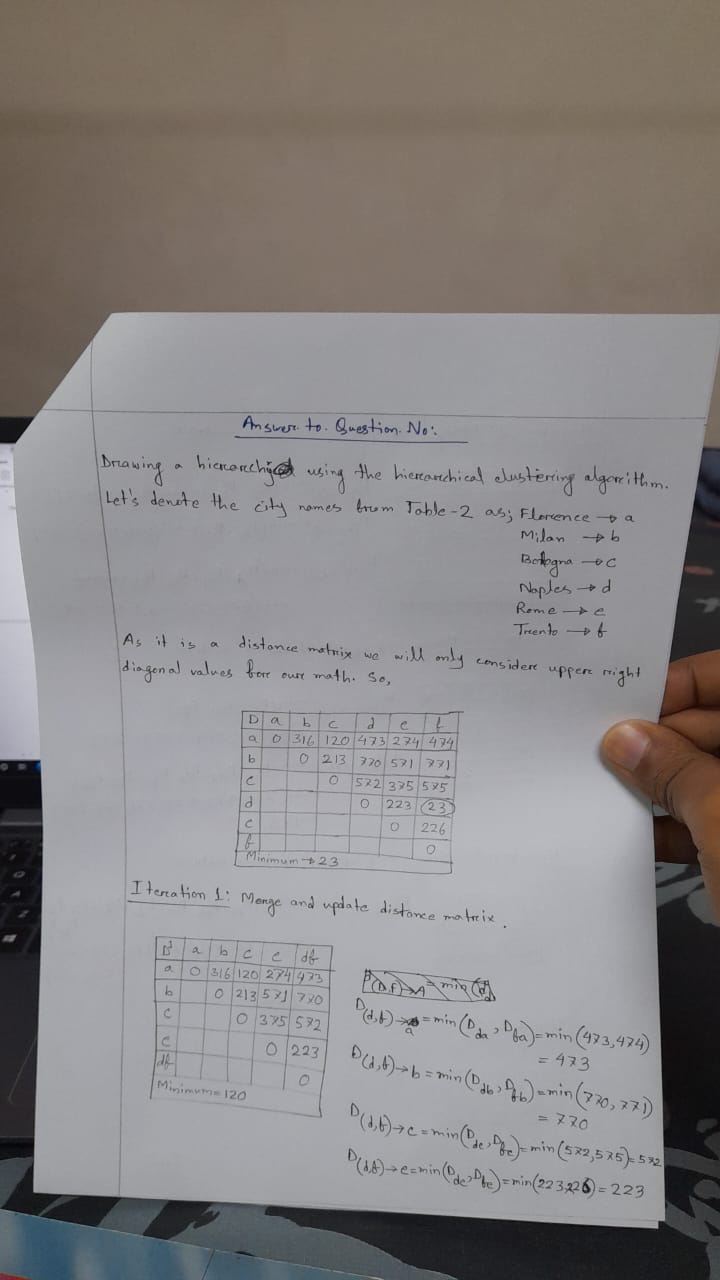 Answer. to. Question. No:
Drawing a hierarchy using the hierarchical clustering algorithm.
Let's denote the city names from Table-2 as; Florence → a
Milan → b
Bologna → c
Naples → d
Rome → e
Trento → f
As it is a distance matrix we will only consider upper right
diagonal values for our math. So,
D a b c d e f
a 0 316 120 473 274 474
b 0 213 770 571 771
c 0 572 375 575
d 0 223 23
e 0 226
f 0
Minimum → 23
Iteration 1: Merge and update distance matrix.
D a b c e df
a 0 316 120 274 473
b 0 213 571 770
c 0 375 572
e 0 223
df 0
Minimum = 120
D(d,f)→a = min(Dda, Dfa) = min(473,474)
= 473
D(d,f)→b = min(Ddb, Dfb) = min(770, 771)
= 770
D(d,f)→c = min(Ddc, Dfc) = min(572,575) = 572
D(d,f)→e = min(Dde, Dfe) = min(223,226) = 223